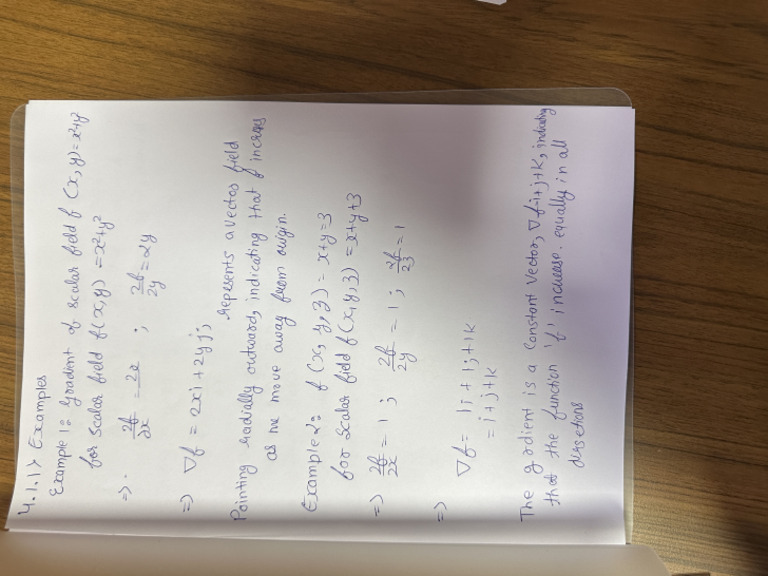 4.1.1> Examples
Example 1: Gradient of scalar field f (x, y) = x²+y²
for scalar field f(x, y) = x²+y²
=> . ∂f/∂x = 2x ; ∂f/∂y = 2y
=> ∇f = 2xi + 2yj;
represents a vector field
Pointing radially outward, indicating that f increases
as me move away from origin.
Example 2: f (x, y, z) = x+y=3
for scalar field f(x, y, z) = x+y+z
=> ∂f/∂x = 1 ; ∂f/∂y = 1 ; ∂f/∂z = 1
=> ∇f = 1i + 1j + 1k
= i + j + k
The gradient is a constant vector, ∇f=i+j+k,
that the function 'f' increase. equally in all
directions